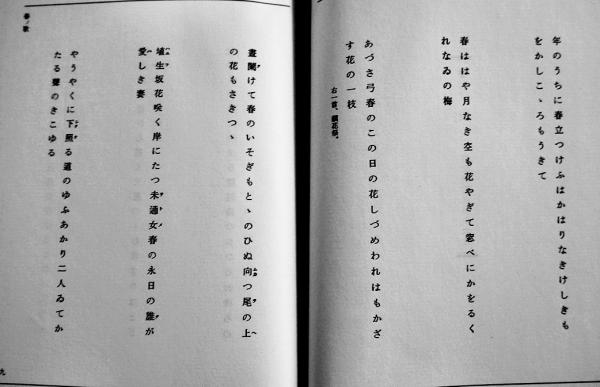 年のうちに春立つけふはかはりなきけしきも
をかしこゝろもうきて
春ははや月なき空も花やぎて窓べにかをるく
れなゐの梅
あづさ弓春のこの日の花しづめわれはもかざ
す花の一枝
右一首、鎭花祭。
晝闌けて春のいそぎもとゝのひぬ向つ尾の上
の花もさきつゝ
埴生坂花咲く岸にたつ未通女春の永日の誰が
愛しき妻
やうやくに下照る道のゆふあかり二人ゐてか
たる聲のきこゆる
春ノ歌
九